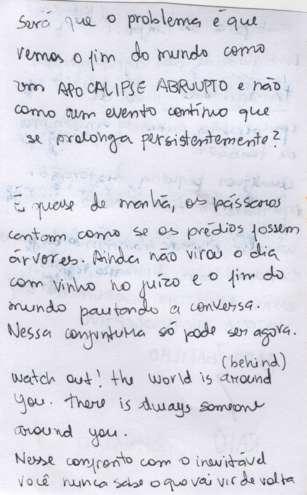 Será que o problema é que
vemos o fim do mundo como
um APOCALIPSE ABRUUPTO e não
como um evento contínuo que
se prolonga persistentemente?
É quase de manhã, os pássaros
cantam como se os prédios fossem
árvores. Ainda não virou o dia
com vinho no juízo e o fim do
mundo pautando a conversa.
Nessa conjuntura só pode ser agora.
(behind)
watch out! the world is around
you. there is always someone
around you.
Nesse confronto com o inevitável
você nunca sabe o que vai vir de volta